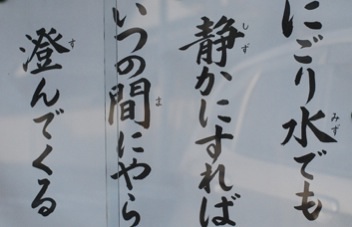 にごり水でも
静かにすれば
いつの間にやら
澄んでくる